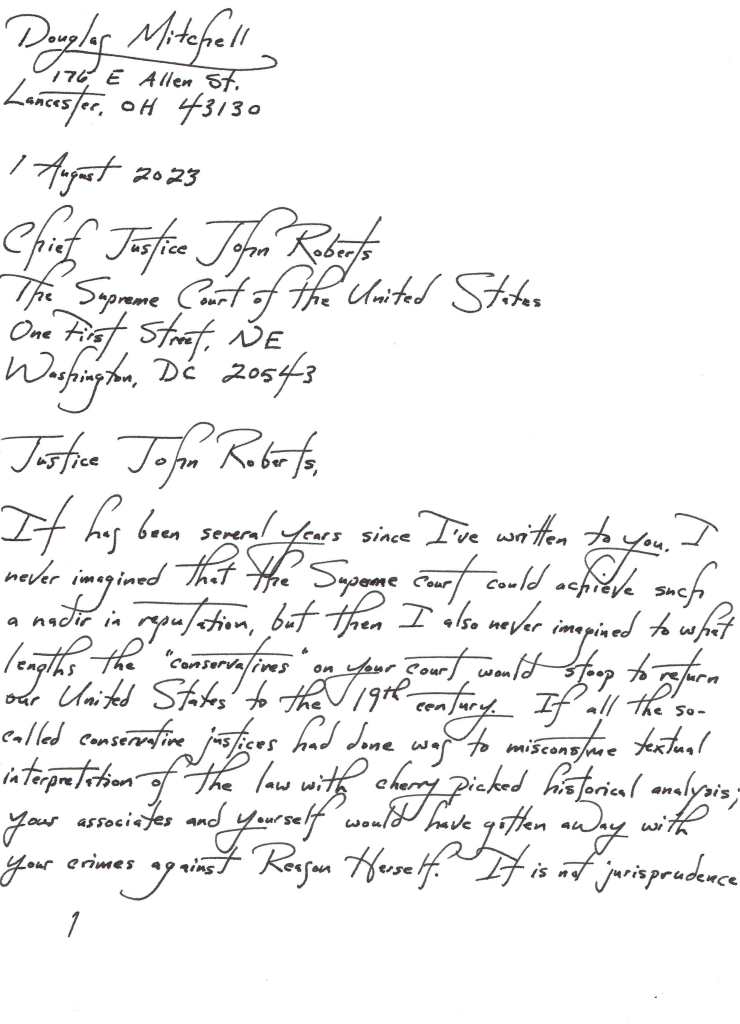 Douglas Mitchell
176 E Allen St.
Lancaster, OH 43130
1 August 2023
Chief Justice John Roberts
The Supreme Court of the United States
One First Street, NE
Washington, DC 20543
Justice John Roberts,
It has been several years since I've written to you. I
never imagined that the Supeme court could achieve such
a nadir in reputation, but then I also never imagined to what
lengths the "conservatives" on your court would stoop to return
our United States to the 19th century. If all the so-
called conservative justices had done was to misconstrue textual
interpretation of the law with cherry picked historical analysis;
your associates and yourself would have gotten away with
your crimes against Reason Herself. It is not jurisprudence
1